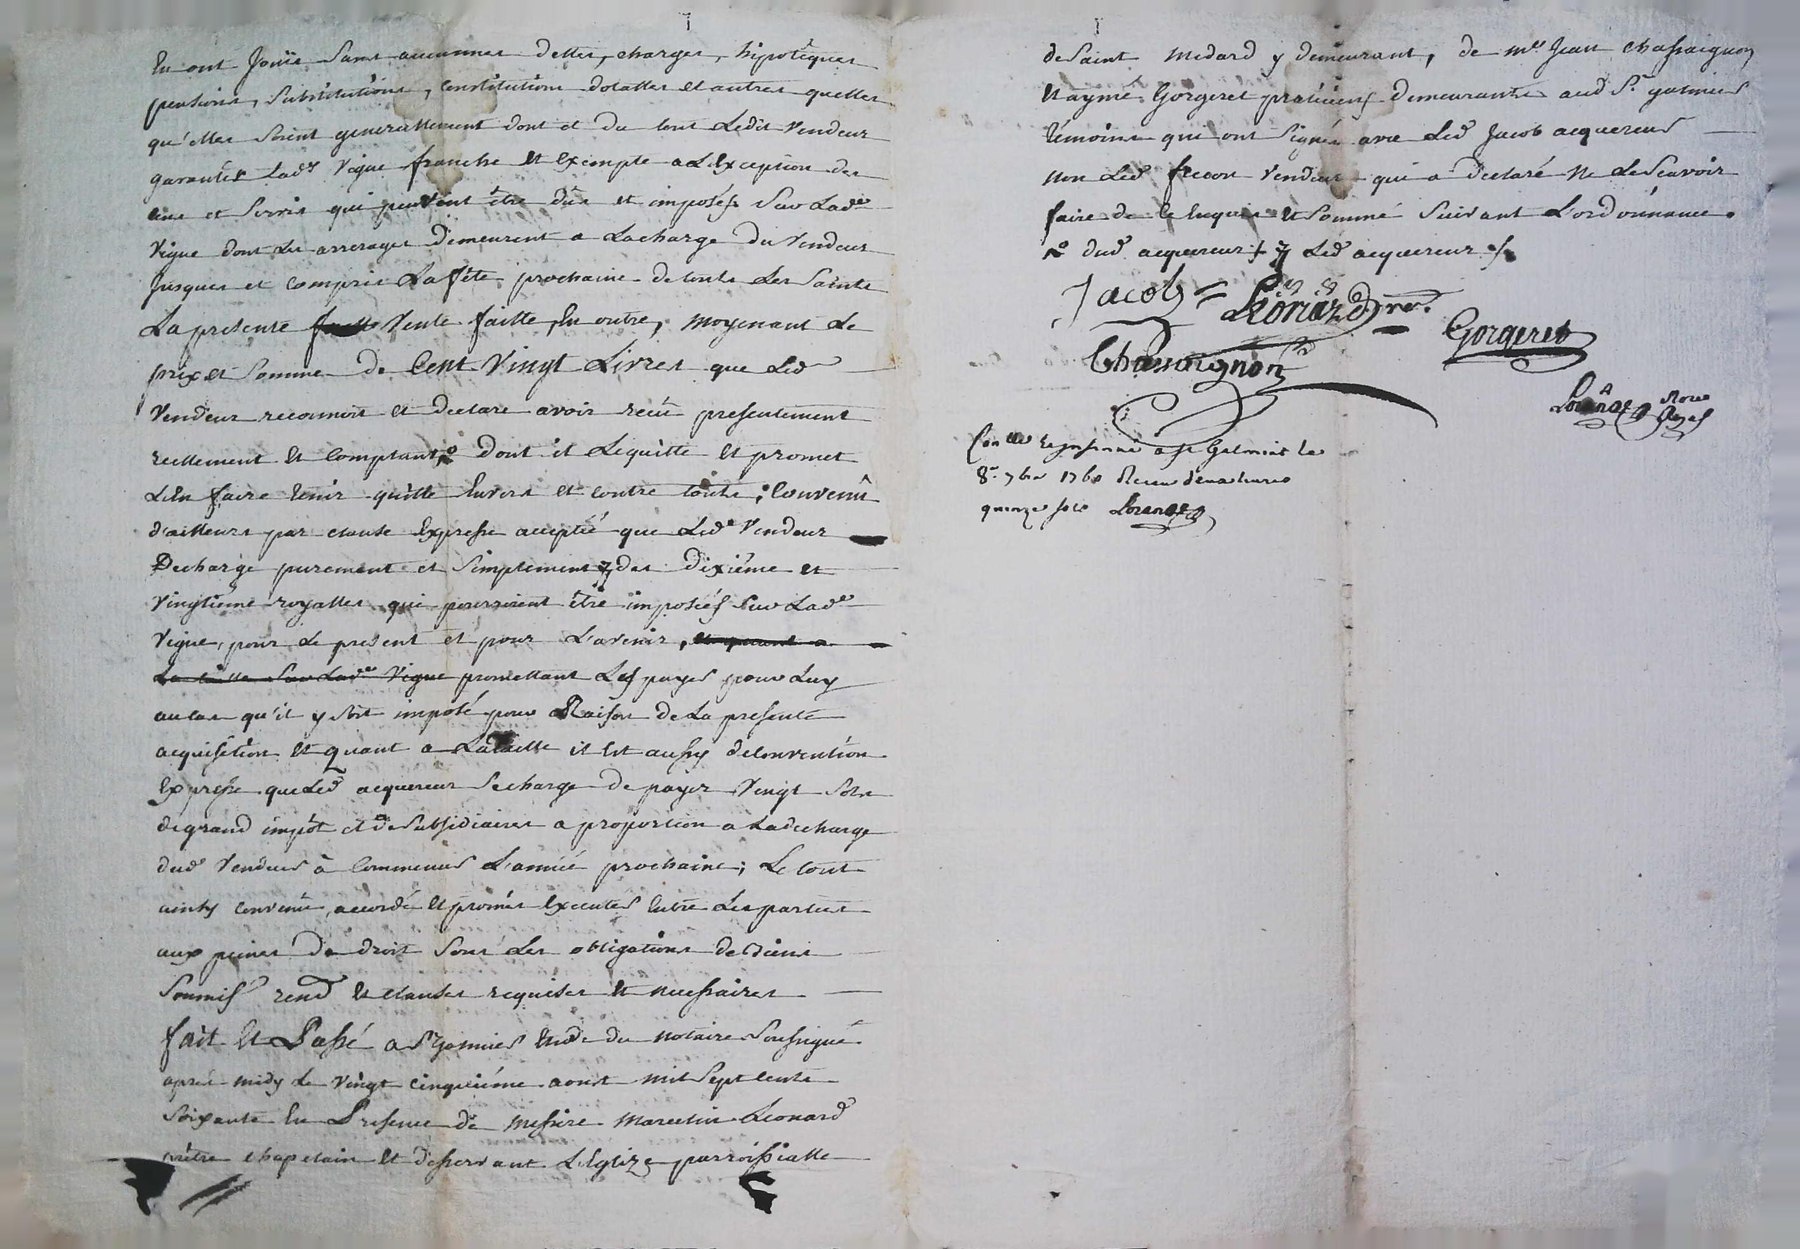 En ont Joüie Sans aucunnes dettes, charges, hipotèques
pensions, Substitutions, Constitutions dotalles et autres quelles
qu'elles Soient generallement dont et du tout Ledit Vendeur
garantir Lad.e Vigne franche et Exempte a L'Exception des
cens et Servis qui peuvent être düs et imposés Sur Lad.e
Vigne dont Les arrerages demeurent a La charge du Vendeur
Jusques et compris La fête prochaine de touts Les Saints
La presente Vente faitte, En outre, moyenant Le
prix et Somme de Cent Vingt Livres que Led
Vendeur reconnoit et declare avoir reçu presentement
reellement et Comptant, dont il Le quitte et promet
L'En faire tenir quitte Envers et contre touts; Convenû
d'ailleurs par clause Expresse acceptée que Led.t Vendeur
Decharge purement et Simplement des dixiéme et
Vingtiême royalles qui pourroient être imposées Sur Lad.e
Vigne, pour Le present et pour L'avenir, et quant a
La taille Sur Lad.e Vigne promettant Les payer pour Luy
au cas qu'il y soit imposé pour Raison de La presente
acquisition et quant a La taille il Est aussy de Convention
Expresse que Led acquereur Se charge de payer Vingt Sols
de grand impôt et de Subsidiaires a proportion a La decharge
dud Vendeur à Commencer L'année prochaine; Le tout
ainsy convenû, accordé et promis Executer Entre Les parties
aux peines de droit Sous Les obligations de biens
Soumis.s rend et clauses requises et necessaires
fait Et Passé a S.t Galmier Etude du notaire Soussigné
après midy Le Vingt cinquiême aoust mil Sept Cents
Soixante En Presence de messire Marcelin Leonard
prêtre chapelain et desservant L'Eglize parroissialle
de Saint Medard y demeurant, de m.re Jean Chassaignon
et aymé Gorgeret praticiens demeurants aud S.t galmier
témoins qui ont Signé avec Led Jacob acquereur
non Led Vendeur qui a declaré ne Le Scavoir
faire de ce Enquis et Sommé Suivant L'ordonnance.
dud acquereur Led acquereur
Jacob Léonard
Gorgeret
Chassaignon
Con.lle a S.t Galmier Le
8.e 7bre 1760 Receu
quinze sols